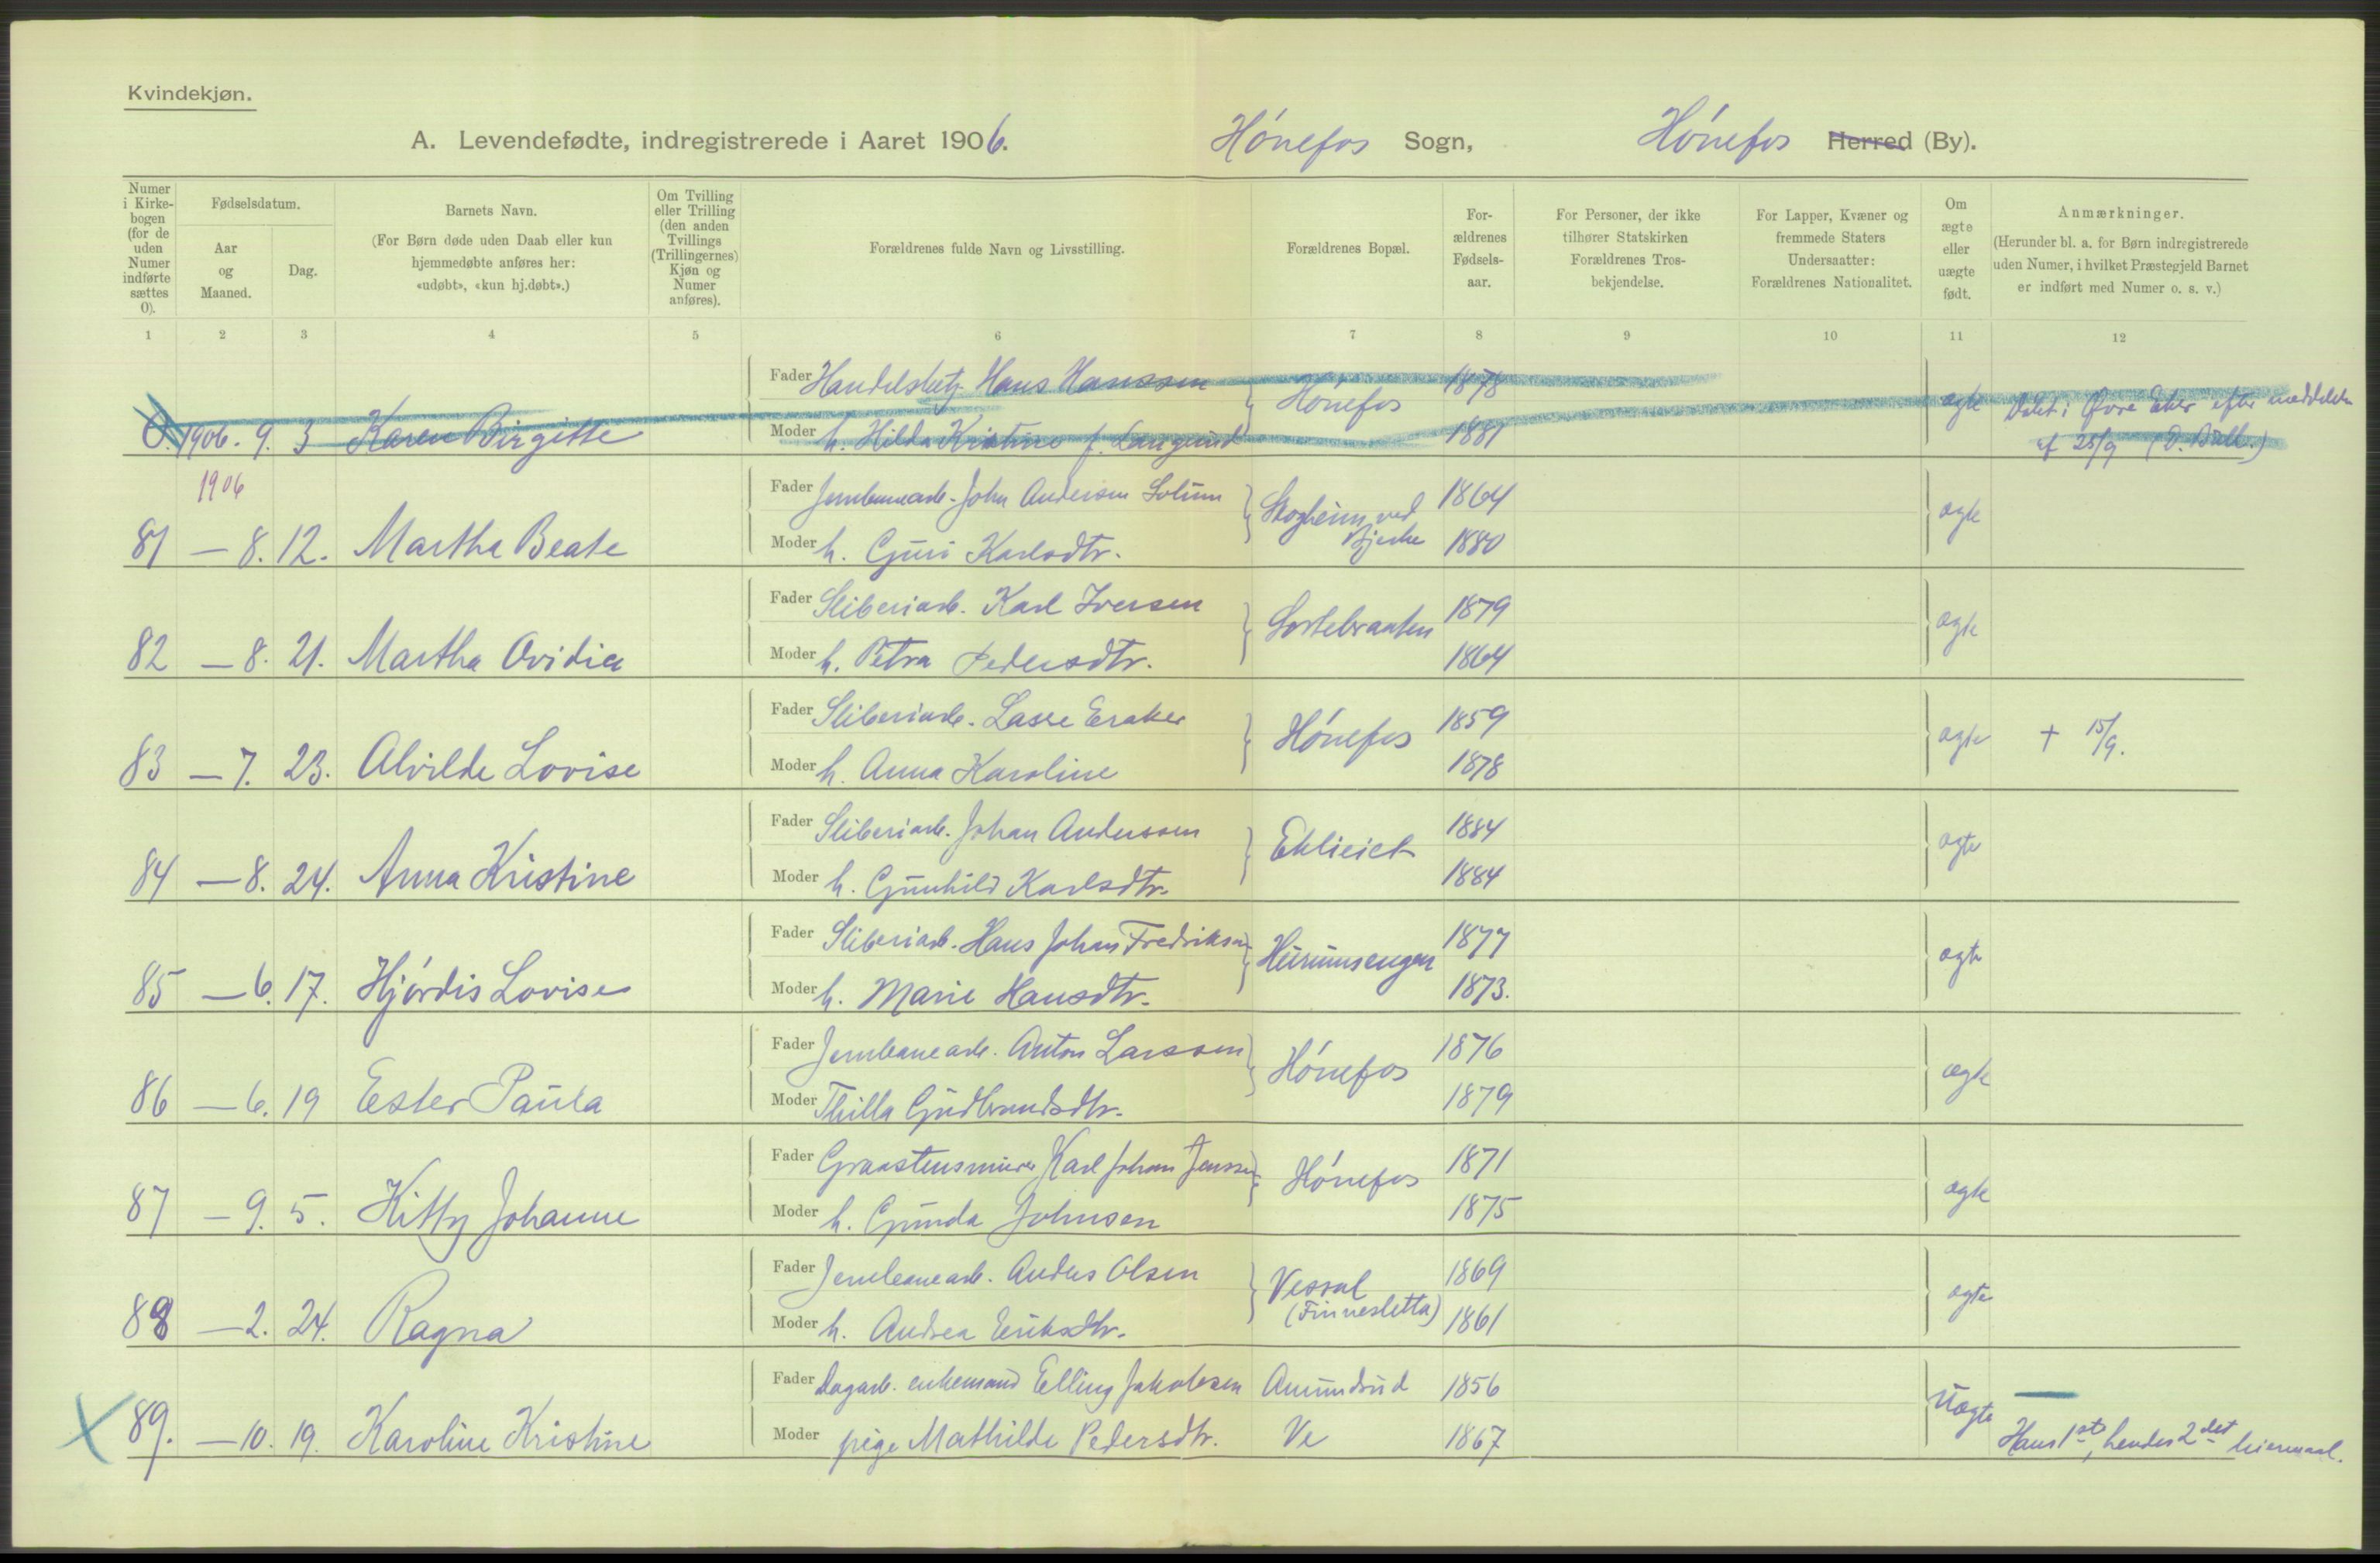 Kvindekjøn.
A. Levendefødte, indregistrerede i Aaret 1906. Hónefos Sogn, Hónefos Herred (By).
Numer i Kirkebogen (for de uden Numer indførte sættes 0).
Fødselsdatum.
Aar og Maaned.
Dag.
Barnets Navn.
(For Børn døde uden Daab eller kun hjemmedøbte anføres her: «udøbt», «kun hj.døbt».)
Om Tvilling eller Trilling (den anden Tvillings (Trillingernes) Kjøn og Numer anføres).
Forældrenes fulde Navn og Livsstilling.
Forældrenes Bopæl.
For-ældrenes Fødsels-aar.
For Personer, der ikke tilhører Statskirken Forældrenes Tros-bekjendelse.
For Lapper, Kvæner og fremmede Staters Undersaatter: Forældrenes Nationalitet.
Om ægte eller uægte født.
Anmærkninger.
(Herunder bl. a. for Børn indregistrerede uden Numer, i hvilket Præstegjeld Barnet er indført med Numer o. s. v.)
1 2 3 4 5 6 7 8 9 10 11 12
Fader Handelsbetj. Hans Hanssen Hónefos 1878
0. 1906. 9. 3 Karen Birgitte Moder h. Hilda Kristine f. 1881 ægte Øvre Eker efter meddelelse
af 25/9
1906
Fader Jernbanearb. John Andersen Solum Skogheim ved Bjerke 1864
81 — 8. 12. Martha Beate Moder h. Guri Karlsdtr. 1880 ægte
Fader Sliberiarb. Karl Iversen Sortebraaten 1879
82 — 8. 21. Martha Ovidia Moder h. Petra Pedersdtr. 1864 ægte
Fader Sliberiarb. Lasse Eraker Hónefos 1859
83 — 7. 23. Alvilde Lovise Moder h. Anna Karoline 1878 ægte + 15/9.
Fader Sliberiarb. Johan Anderssen Eklieiet 1884
84 — 8. 24. Anna Kristine Moder h. Gunhild Karlsdtr. 1884 ægte
Fader Sliberiarb. Hans Johan Fredriksen Heiumsengen 1877
85 — 6. 17. Hjórdis Lovise Moder h. Marie Hansdtr. 1873. ægte
Fader Jernbanearb. Anton Larssen Hónefos 1876
86 — 6. 19 Ester Paula Moder Thilla Gudbrandsdtr. 1879 ægte
Fader Graastensmurer Karl Johan Jenssen Hónefos 1871
87 — 9. 5. Kitty Johanne Moder h. Gunda Johnsen 1875 ægte
Fader Jernbanearb. Anders Olsen Vesral (Finnesletta) 1869
88 — 2. 24. Ragna Moder h. Andrea Eriksdtr. 1861 ægte
Fader Dagarb. enkemand Elling Jakobsen Amundrud 1856
89. — 10. 19. Karoline Kristine Moder pige Mathilde Pedersdtr. Ve 1867 Uægte —
Hans 1ste, hendes 2det leiermaal.